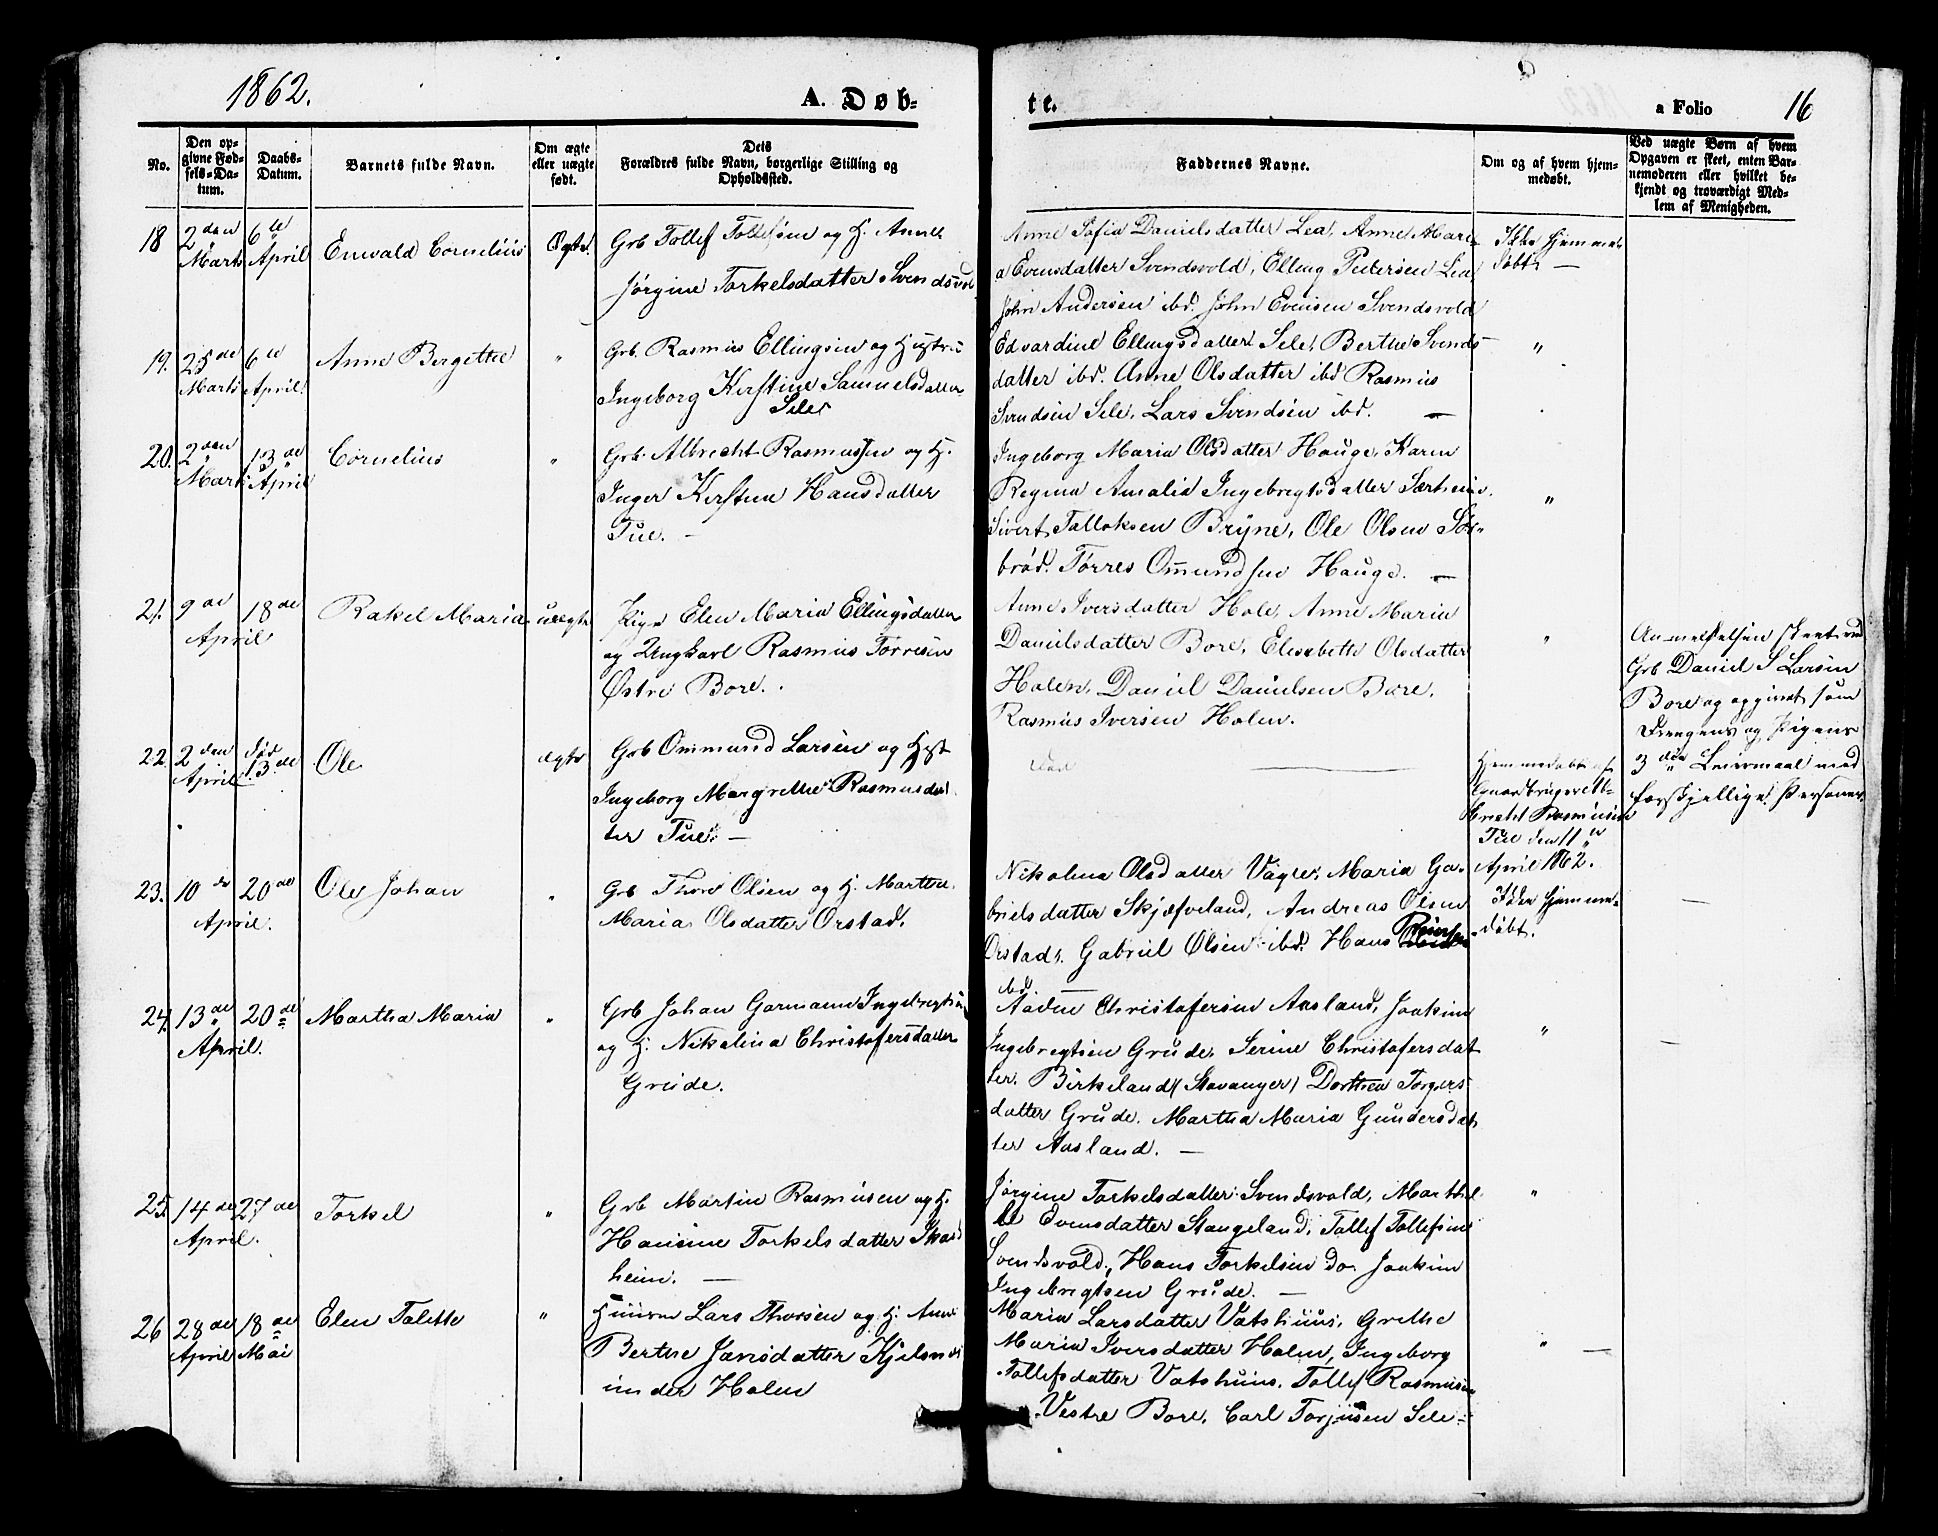 1862.
A. Døb-
te.
a Folio
16
No.
Den op-
givne Fød-
sels-Da-
tum.
Daabs-
Datum.
Barnets fulde Navn.
Om ægte
eller uægte
født.
Dets
Forældres fulde Navn, borgerlige Stilling og
Opholdssted.
Faddernes Navne.
Om og af hvem hjem-
medøbt.
Ved uægte Børn af hvem
Opgaven er skeet, enten Bar-
nemoderen eller hvilket be-
kjendt og troværdigt Med-
lem af Menigheden.
18
2den
Marts
6te
April
Enevald Cornelius
Ægte
Grb Tollef Tollefsen og H. Anne
Jørgine Torkelsdatter Svendsvold
Anne Sofia Danielsdatter Lea, Anne Mari-
a Evensdatter Svendsvold, Elling Pedersen Lea,
John Andersen ibd. John Evensen Svendsvold
Ikke hjemme-
døbt. —
19.
25de
Marts
6te
April
Anne Bergette
"
Grb. Rasmus Ellingsen og Hustru
Ingeborg Kirstine Samuelsdatter
Sele
Edvardine Ellingsdatter Sele, Berthe Svends-
datter ibd. Anne Olsdatter ibd Rasmus
Svendsen Sele, Lars Svendsen ibd. —
"
20.
2den
Marts
13de
April
Cornelius
"
Grb. Albrecht Rasmussen og H.
Inger Kirstine Hansdatter
Tue. —
Ingeborg Maria Olsdatter Hauge, Karen
Regina Amalia Ingebregtsdatter Særheim,
Sivert Tolloksen Bryne, Ole Olsen Sør-
brød. Tørres Ommundsen Hauge. —
"
21.
9de
April
18de
Rakel Maria
uægte
Pige Elen Maria Ellingsdatter
og Ungkarl Rasmus Torresen
Østre Bore.
Anne Iversdatter Hole, Anne Maria
Danielsdatter Bore, Elisabeth Olsdatter
Holen, Daniel Danielsen Bore,
Rasmus Iversen Holen.
"
Anmeldelsen skeet ved
Grb Daniel S Larsen
Bore og opgivet som
Drengens og Pigens
3die Leiermaal med
forskjellige Personer
22
2den
April
død
13de
Ole
ægte
Grb Ommund Larsen og Hust
Ingeborg Margrethe Rasmusdat
ter Tue. —
død —
Hjemmedøbt af
Gaardbruger Al-
brecht Rasmussen
Tue den 11te
April 1862.
23.
10de
April.
20de
Ole Johan
"
Grb Thore Olsen og H. Marthe
Maria Olsdatter Orstad.
Nikolina Olsdatter Vagle, Maria Ga-
brielsdatter Skjæfveland, Andreas Olsen
Orstad, Gabriel Olsen ibd. Hans
ibd —
Ikke hjemme-
døbt.
—
24.
13de
April.
20de
Martha Maria
"
Grb Johan Garmann Ingebregtsen
og H. Nikolina Christofersdatter
Grude.
Aaden Christofersen Aasland, Joakim
Ingebregtsen Grude, Serine Christofersdat-
ter. Birkeland (Stavanger) Dorthea Torgers
datter Grude. Martha Maria Gundersdat
ter Aasland. —
"
—
25.
14de
April.
27de
Torkel
"
Grb Martin Rasmusen og H.
Hansine Torkelsdatter Skad
heim. —
Jørgine Torkelsdatter Svendsvold, Marthe
Evensdatter Stangeland, Tollef Tollefsen
Svendsvold, Hans Torkelsen do. Joakim
Ingebregtsen Grude. —
"
26
28de
April
18de
Mai
Elen Talette
"
Lars Thorsen og H. Anne
Berthe Jansdatter
under Holen
Maria Larsdatter Vatshuus, Grethe
Maria Iversdatter Holen, Ingeborg
Tollefsdatter Vatshuus. Tollef Rasmusen
Vestre Bore, Carl Torjusen Sele.
" —